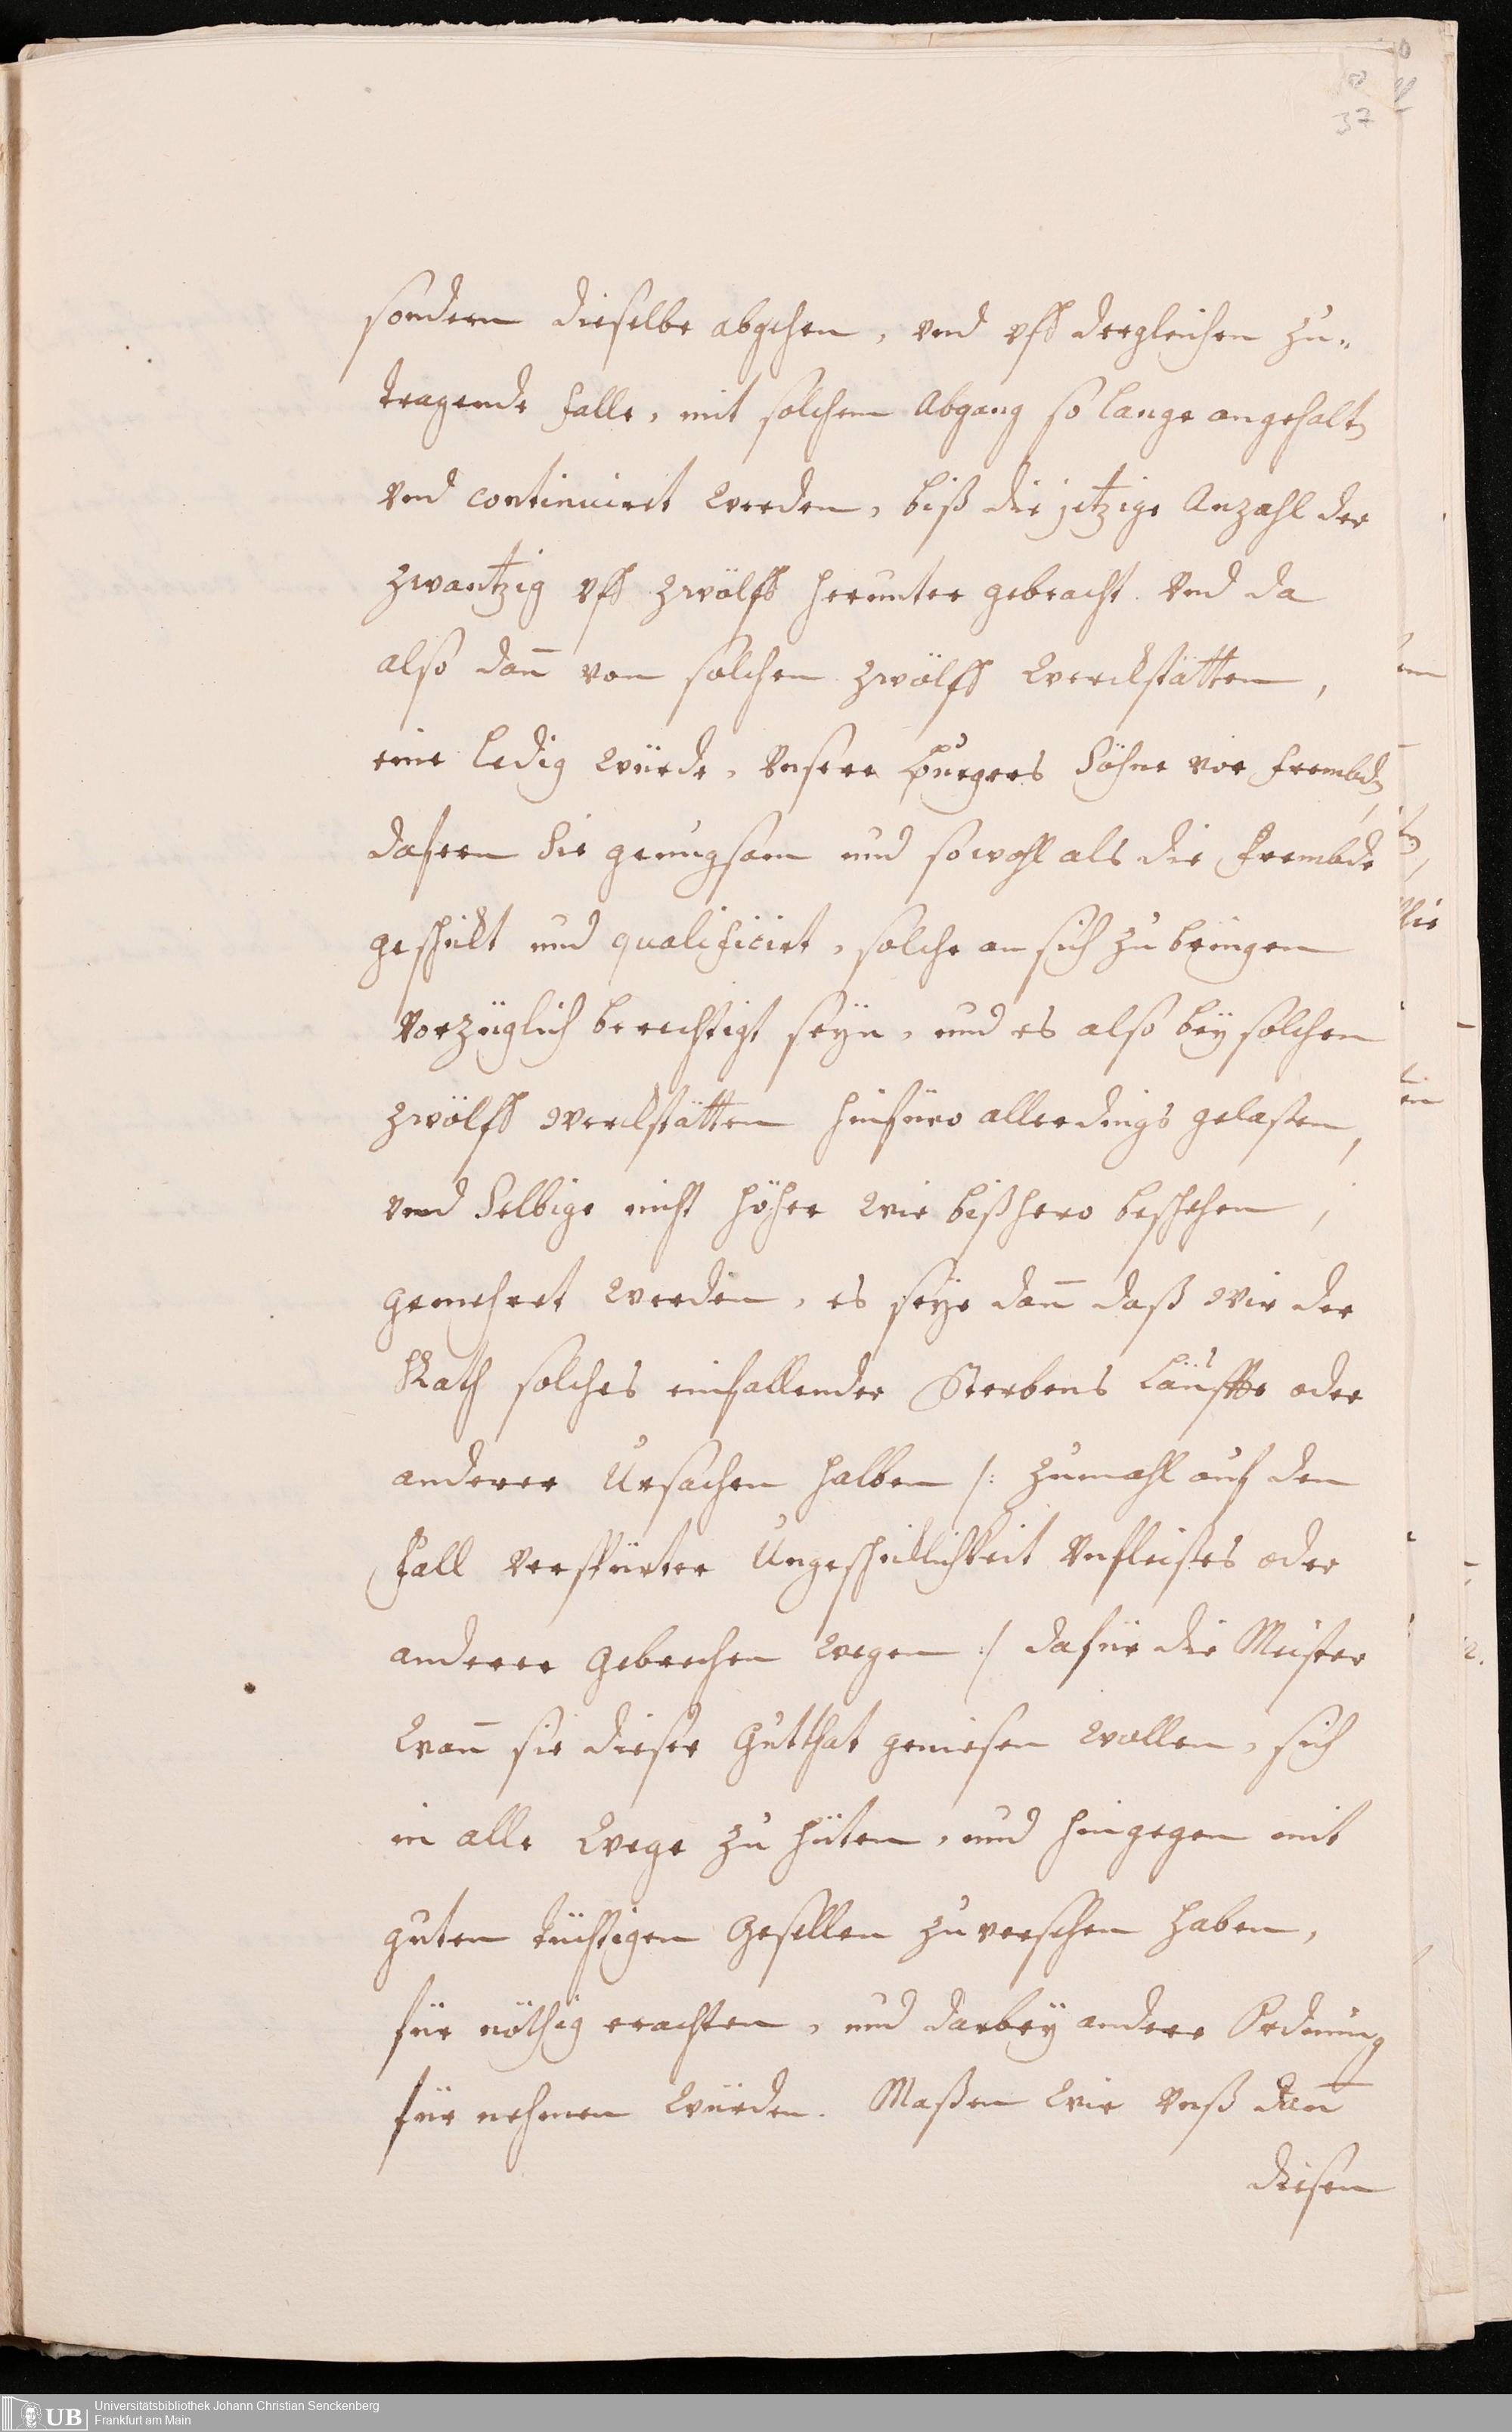 37
sondern dieselbe abgehen, vnd vff dergleichen zu„
tragende Falle, mit solchem Abgang so lange angehalt
vnd continuiret werden, biß die jetzige Anzahl der
zwantzig vff zwölff herunter gebracht. Vnd da
also dañ von solchen zwölff Werckstätten,
eine ledig würde, Vnsere Burgers Söhne vor frembd,
dafern Sie genugsam und sowohl als die Frembde
geschickt und qualificirt, solche an sich zu bringen
Vorzüglich berechtigt seyn, und es also bey solchen
zwölff Werckstätten hinfüro allerdings gelaßen,
vnd Selbige nicht höher wie bißhero beschehen,
gemehret werden, es seye dañ daß Wir der
Rath solches einfallender Sterbens Läuffte oder
anderer Ursachen halben /: zumahl auf den
Fall verspürter Ungeschicklichkeit Vnfleißes oder
anderer Gebrechen wegen :/ dafür die Meister
Wañ sie dieser Gutthat geniesen wollen, sich
in alle Wege zu hüten, und hingegen mit
guten tüchtigen Gesellen zu versehen haben,
für nöthig erachten, und darbey andere Ordnung
für nehmen würden. Maßen Wir Vnß dañ
diesen
UB
Universitätsbibliothek Johann Christian Senckenberg
Frankfurt am Main